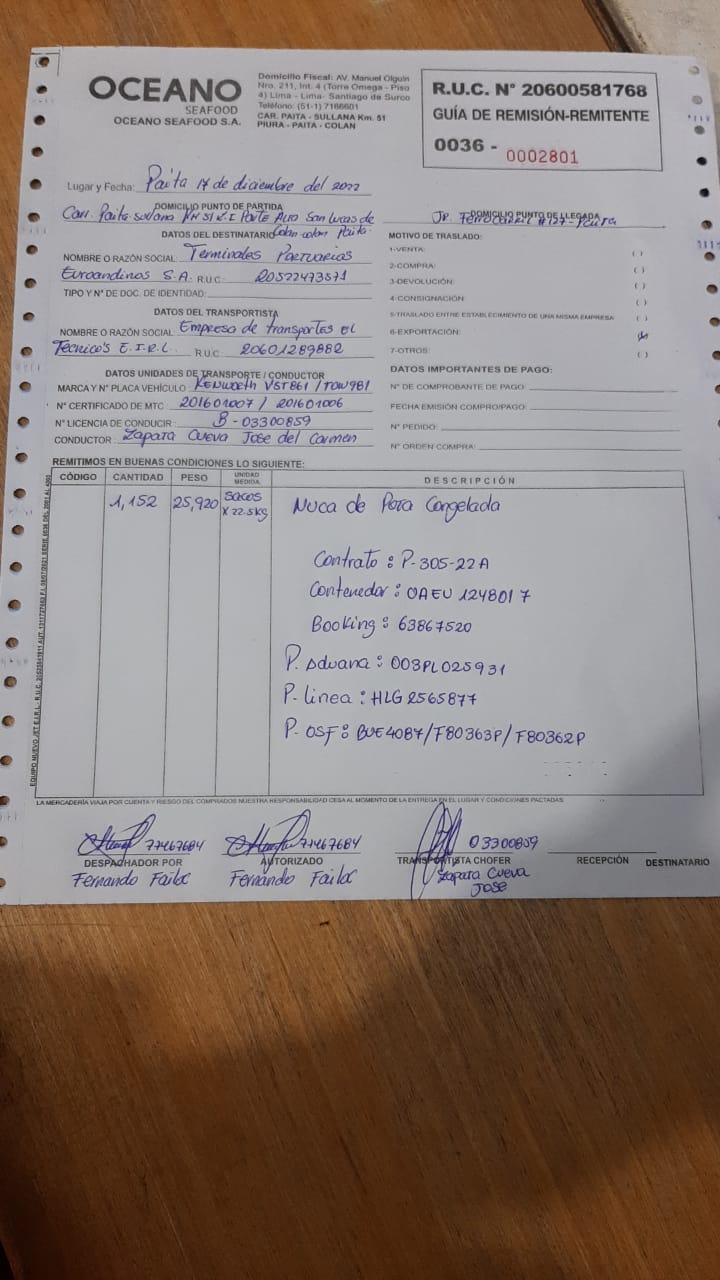 OCEANO
SEAFOOD
OCEANO SEAFOOD S.A.
Domicilio Fiscal: AV. Manuel Olguin
Nro. 211, Int. 4 (Torre Omega - Piso
4) Lima - Lima- Santiago de Surco
Teléfono: (51-1) 7166601
CAR. PAITA - SULLANA Km. 51
PIURA - PAITA - COLAN
R.U.C. N° 20600581768
GUÍA DE REMISIÓN-REMITENTE
0036 - 0002801
Lugar y Fecha: Paita 17 de diciembre del 2022
DOMICILIO PUNTO DE PARTIDA
Carr. Paita Sullana KM 51 Parte Alta San Lucas de
Colan colan Paita.
DOMICILIO PUNTO DE LLEGADA
Jr. Ferrocarril #127 - Paita
DATOS DEL DESTINATARIO
NOMBRE O RAZÓN SOCIAL: Terminales Portuarios
Euroandinos S.A. R.U.C. 20522473571
TIPO Y N° DE DOC. DE IDENTIDAD:
DATOS DEL TRANSPORTISTA
NOMBRE O RAZÓN SOCIAL Empresa de transportes El
Tecnico's E.I.R.L. R.U.C. 20601289882
DATOS UNIDADES DE TRANSPORTE / CONDUCTOR
MARCA Y N° PLACA VEHÍCULO KENWORTH V5T861 / TOW981
N° CERTIFICADO DE MTC 201601007 / 201601006
N° LICENCIA DE CONDUCIR: B - 03300859
CONDUCTOR: Zapata Cueva Jose del Carmen
MOTIVO DE TRASLADO:
1-VENTA: ( )
2-COMPRA: ( )
3-DEVOLUCIÓN: ( )
4-CONSIGNACIÓN: ( )
5-TRASLADO ENTRE ESTABLECIMIENTO DE UNA MISMA EMPRESA ( )
6-EXPORTACIÓN:
7-OTROS: ( )
DATOS IMPORTANTES DE PAGO:
N° DE COMPROBANTE DE PAGO:
FECHA EMISIÓN COMPRO/PAGO:
N° PEDIDO:
N° ORDEN COMPRA:
REMITIMOS EN BUENAS CONDICIONES LO SIGUIENTE:
CÓDIGO CANTIDAD PESO UNIDAD MEDIDA DESCRIPCIÓN
1,152 25,920 sacos x 22.5kg Nuca de Pota Congelada
Contrato : P-305-22A
Contenedor : OAEU 124801 7
Booking : 63867520
P. Aduana : 003PL025931
P- Linea : HLG 2565877
P- OSF : BUE4087/F80363P/F80362P
LA MERCADERÍA VIAJA POR CUENTA Y RIESGO DEL COMPRADOS NUESTRA RESPONSABILIDAD CESA AL MOMENTO DE LA ENTREGA EN EL LUGAR Y CONDICIONES PACTADAS
77467684 77467684 03300859
DESPACHADOR POR AUTORIZADO TRANSPORTISTA CHOFER RECEPCIÓN DESTINATARIO
Fernando Failoc Fernando Failoc Zapata Cueva
Jose